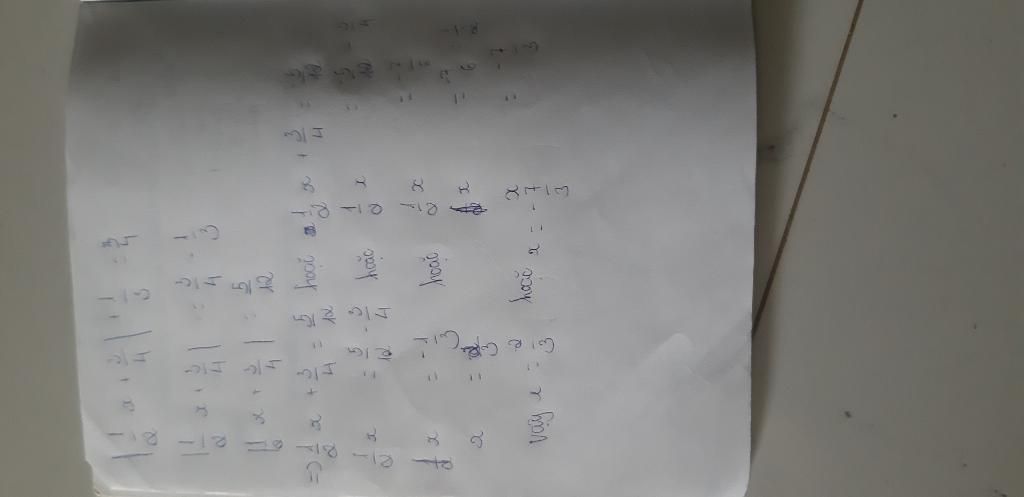 |1/2 x + 3/4| + 1/3 = 3/4
|1/2 x + 3/4| = 3/4 - 1/3
|1/2 x + 3/4| = 5/12
=> 1/2 x + 3/4 = 5/12 hoặc 1/2 x + 3/4 = -5/12
1/2 x = 5/12 - 3/4 hoặc 1/2 x = -5/12 - 3/4
1/2 x = -1/3 hoặc 1/2 x = -7/6
x = 2/3 x = -7/6 : 1/2
x = -7/3
Vậy x = 2/3 hoặc x = -7/3